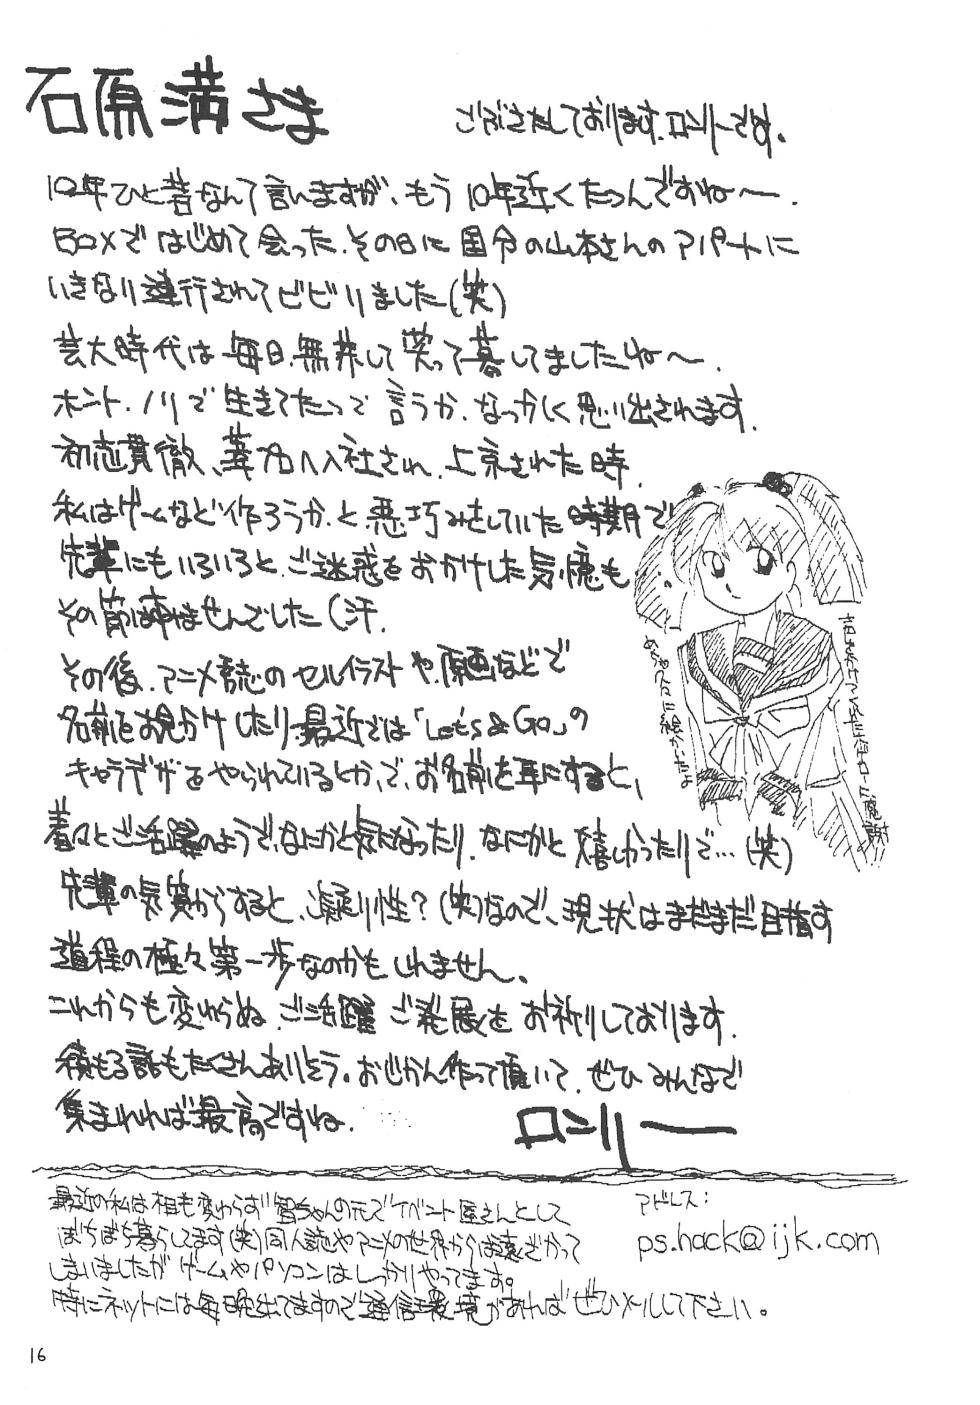 石原満さま
ごぶさたしております。ロンリーです。
10年ひと昔なんて言いますが、もう10年近くたつんですね〜.
BOXではじめて会った、その日に国分の山本さんのアパートに
いきなり連行されてビビリました(笑)
芸大時代は毎日、無茶して笑って暮してましたね〜.
ホント、ノリで生きてたって言うか、なつかしく思い出されます.
初志貫徹、葦プロへ入社され、上京された時.
私はゲームなど作ろうか、と悪巧みをしていた時期で
先輩にもいろいろと、ご迷惑をおかけした気憶も..
その節は申し訳ませんでした(汗.
その後、アニメ誌のセルイラストや、原画などで
名前をお見かけしたり、最近では「Let's & Go」の
キャラデザをやられているとか、で、お名前を耳にすると、
着々とご活躍のようで、なにかと気になったり、なにかと嬉しかったりで…(笑)
先輩の気質からすると、凝り性?(笑)なので、現状はまだまだ目指す
道程の極々第一歩なのかもしれません。
これからも変わらぬ、ご活躍ご発展をお祈りしております.
積もる話もたくさんありそう。おじかん作って頂いて、ぜひみんなで
集まれれば最高ですね.
ロンリー
最近の私は相も変わらず智ちゃんの元でイベント屋さんとして
ぼちぼち暮らしてます(笑)同人誌やアニメの世界からは遠ざかって
しまいましたがゲームやパソコンはしっかりやってます。
特にネットには毎晩出てますので通信環境があればぜひメールして下さい。
アドレス:
ps.hack@ijk.com
16